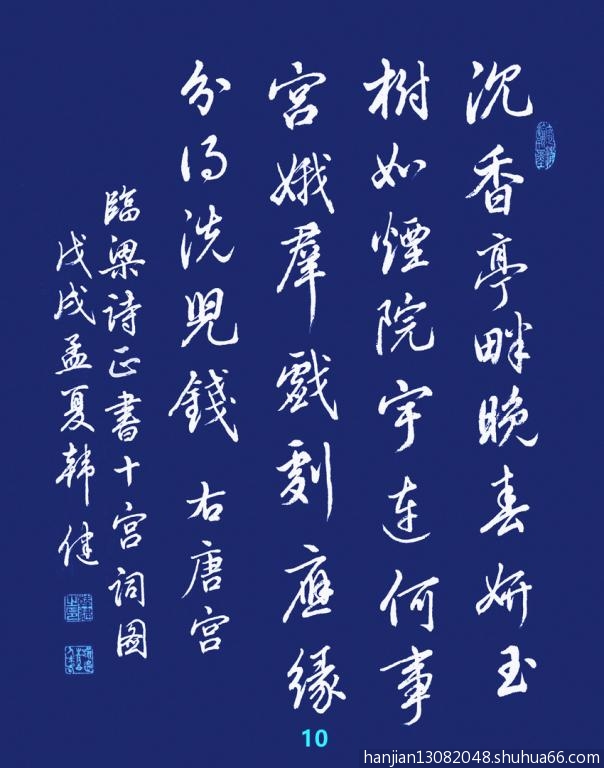 沉香亭畔晚春妍玉
樹如煙院宇連何事
宮娥羣戲劇應緣
分得洗兒錢 右唐宮
臨梁詩正書十宮詞圖
戊戌孟夏韩健
10
hanjian13082048.shuhua66.com